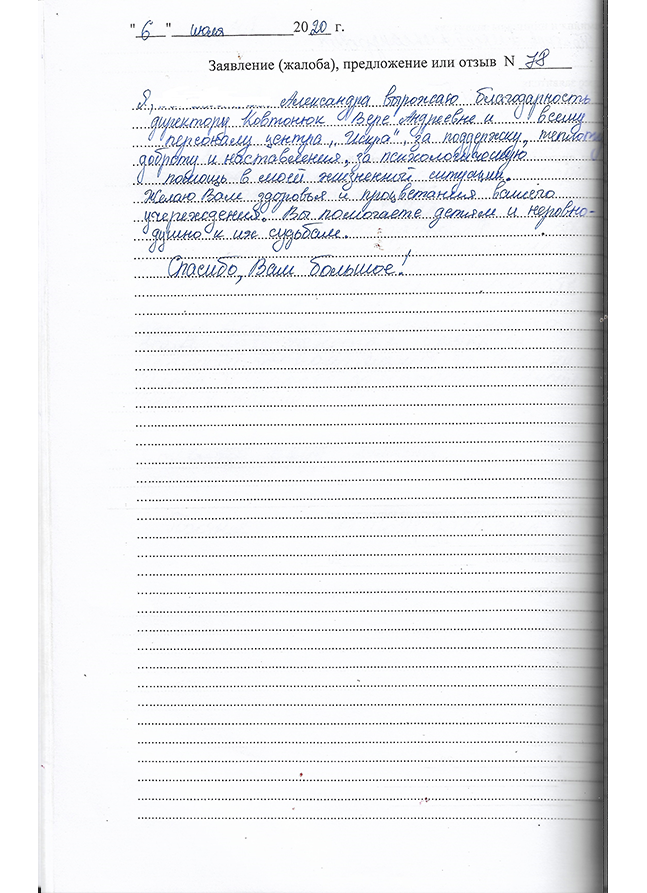 "6" июля 2020 г.
Заявление (жалоба), предложение или отзыв N 78
Я, Александра выражаю благодарность
директору Ковтонюк Вере Андреевне и всему
персоналу центра „Искра", за поддержку, теплоту
доброту и наставления, за психологическую
помощь в моей жизненной ситуации.
Желаю Вам здоровья и процветания вашего
учереждения. Вы помогаете детям и неровно-
душно к их судьбам.
Спасибо, Вам большое!